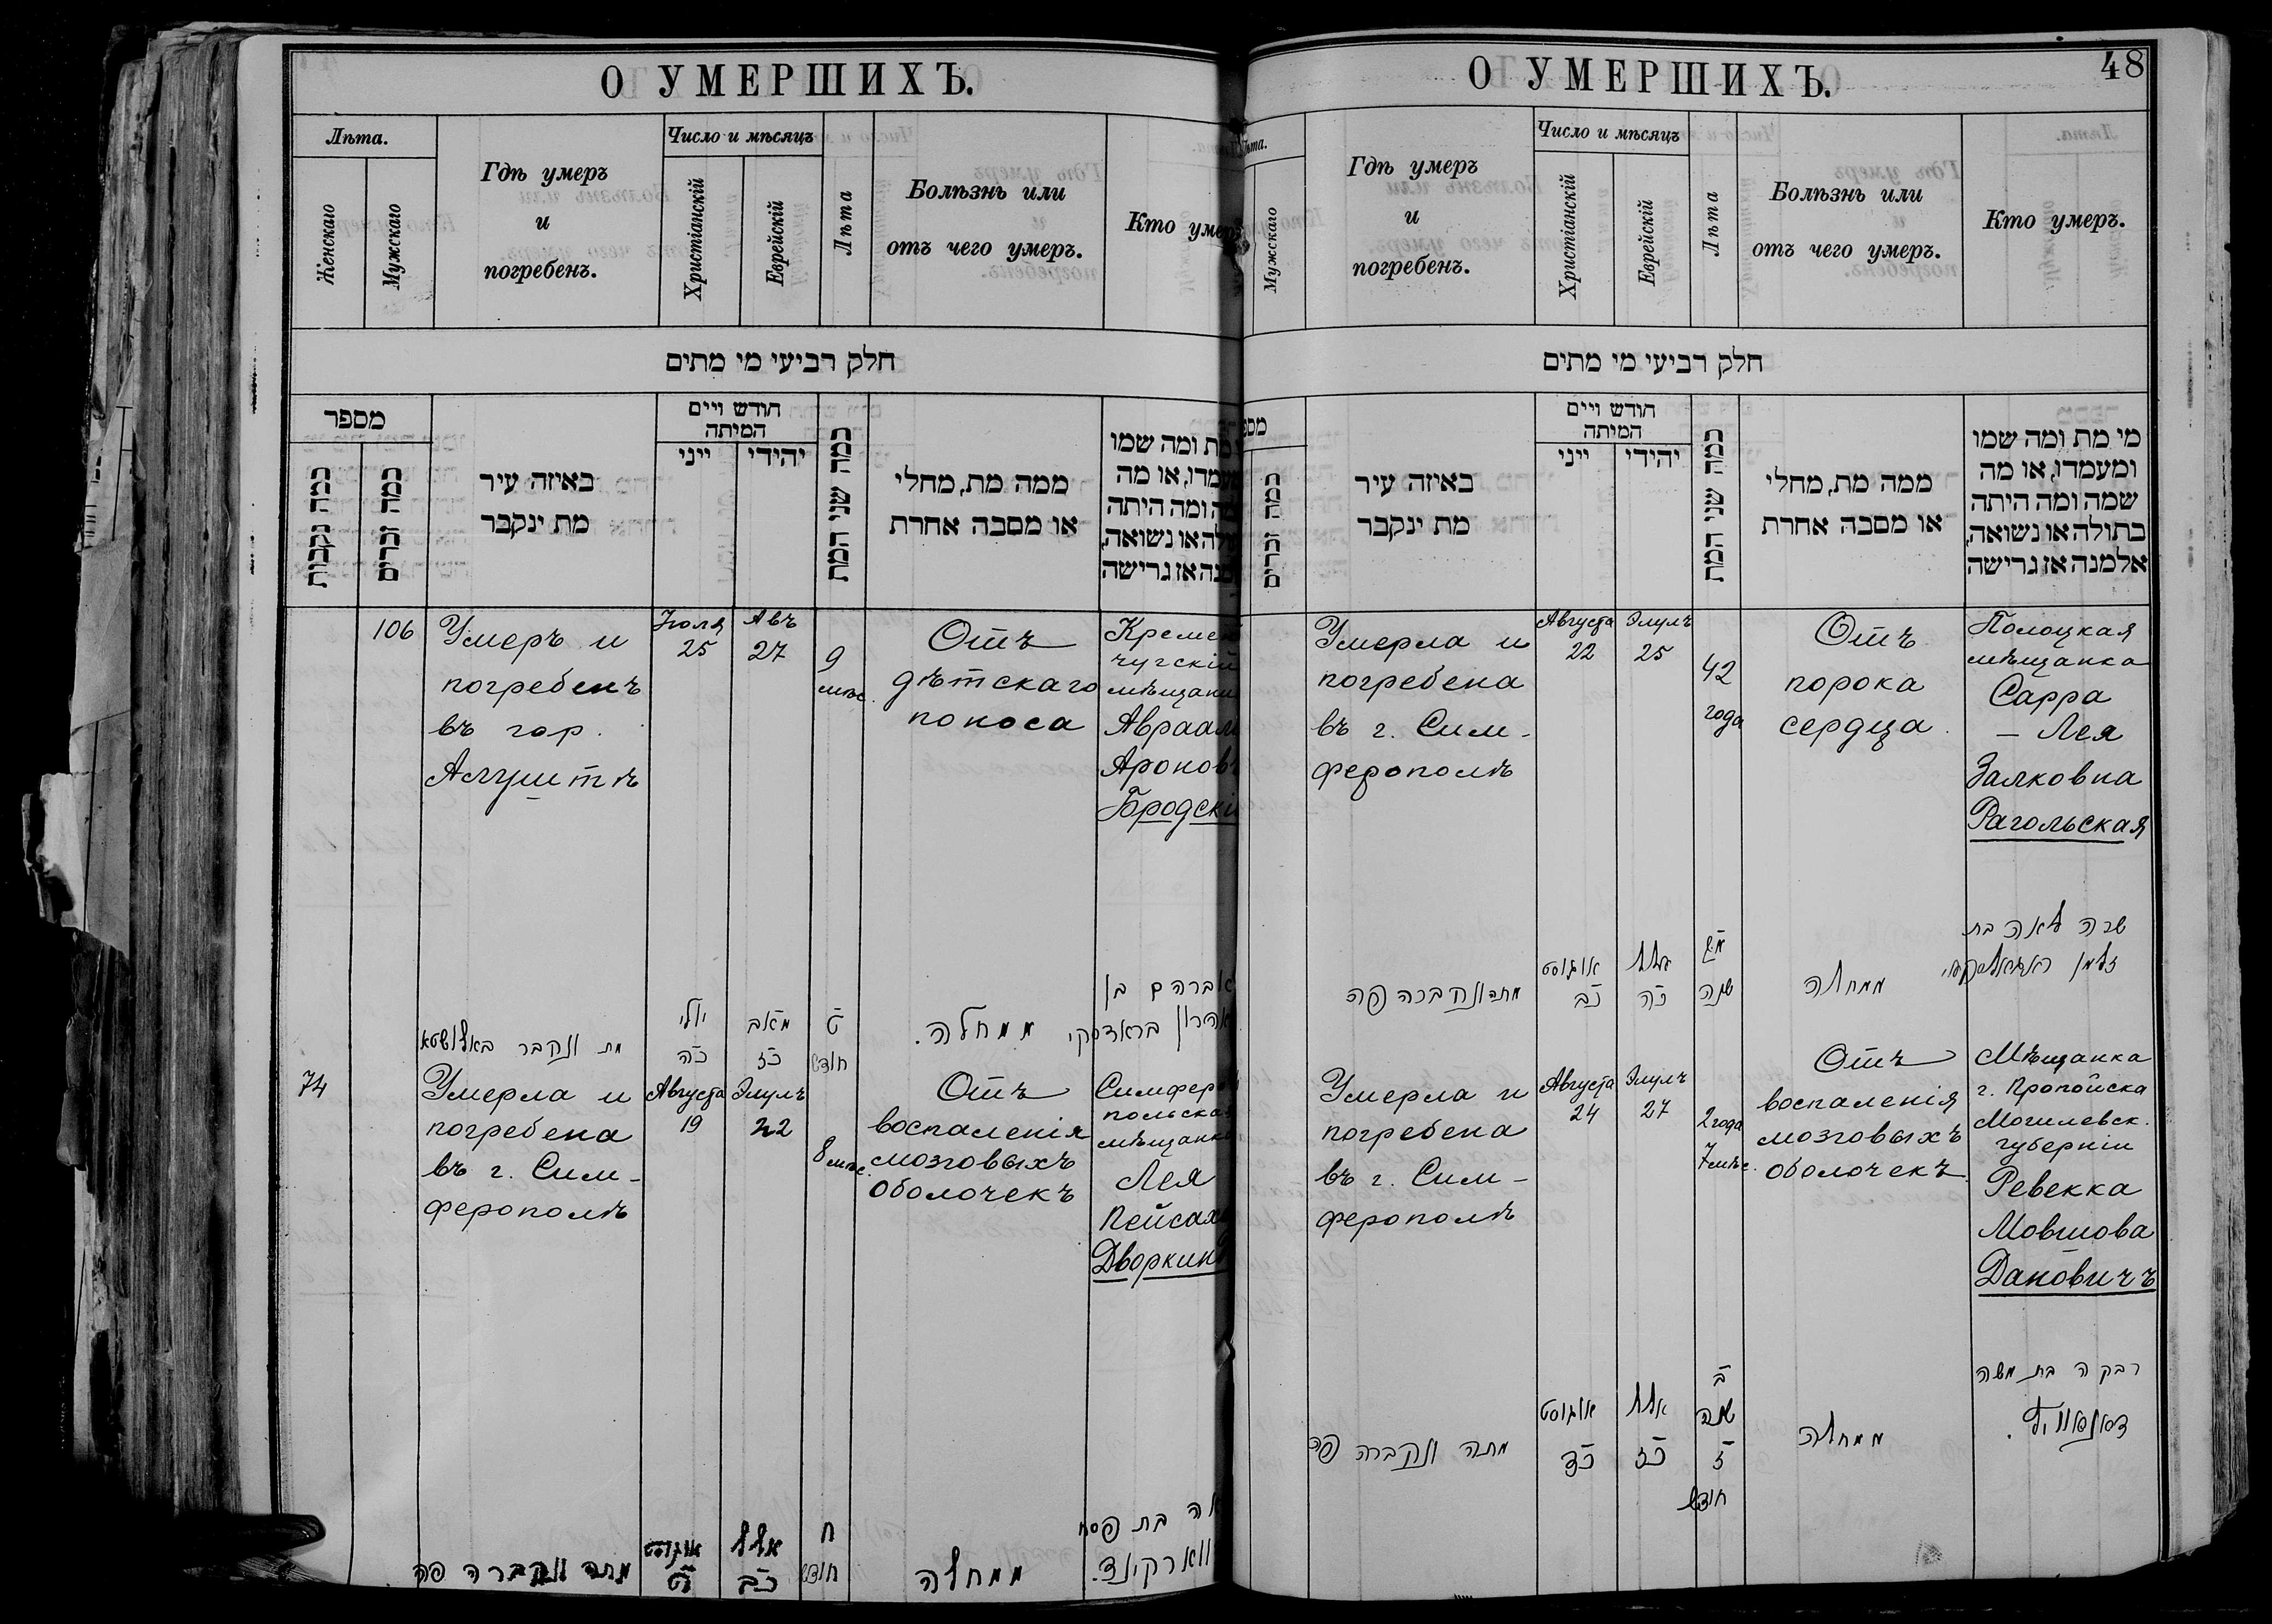 О УМЕРШИХЪ.
Лѣта.
Женскаго
Мужскаго
Гдѣ умеръ
и
погребенъ.
Число и мѣсяцъ
Христіанскій
Еврейскій
Лѣта
Болѣзнь или
отъ чего умеръ.
Кто умеръ
חלק רביעי מי מתים
מספר
כמה נקבות
כמה זכרים
באיזה עיר
מת ינקבר
חודש ויים
המיתה
ייני
יהודי
כמה שני המת
ממה מת, מחלי
או מסבה אחרת
מת ומה שמו
ומה היתה
או נשואה,
אז גרישה
106
Умеръ и
погребенъ
въ гор.
Алуштѣ
Іюля
25
Авъ
27
9
мѣс.
Отъ
дѣтскаго
поноса
Кремен
чугскій
мѣщанин
Авраам
Ароновъ
Бродскій
מת ונקבר באלושטא
יולי
כה
מאב
כז
ט
חודש
ממחלה.
אברהם בן
אהרון בראדסקי
74
Умерла и
погребена
въ г. Сим-
ферополѣ
Августа
19
Элулъ
22
8 мѣс.
Отъ
воспаленія
мозговыхъ
оболочекъ
Симферо
польская
мѣщанка
Лея
Пейсах
Дворкинъ
מתה ונקברה פה
אוגוסט
יט
אלול
כב
ח
חודש
ממחלה
בת פסח
О УМЕРШИХЪ.
48
Лѣта.
Мужскаго
Гдѣ умеръ
и
погребенъ.
Число и мѣсяцъ
Христіанскій
Еврейскій
Лѣта
Болѣзнь или
отъ чего умеръ.
Кто умеръ.
חלק רביעי מי מתים
כמה זכרים
באיזה עיר
מת ינקבר
חודש ויים
המיתה
ייני
יהודי
כמה שני המת
ממה מת, מחלי
או מסבה אחרת
מי מת ומה שמו
ומעמדו, או מה
שמה ומה היתה
בתולה או נשואה,
אלמנה אז גרישה
Умерла и
погребена
въ г. Сим-
ферополѣ
Августа
22
Элулъ
25
42
года
Отъ
порока
сердца.
Полоцкая
мѣщанка
Сарра
– Лея
Залковна
Рагольская
מתה ונקברה פה
אוגוסט
כב
אלול
כה
מב
שנה
ממחלה
שרה לאה בת
זלמן
Умерла и
погребена
въ г. Сим-
ферополѣ
Августа
24
Элулъ
27
2 года
7 мѣс.
Отъ
воспаленія
мозговыхъ
оболочекъ
Мѣщанка
г. Пропойска
Могилевск.
губерніи
Ревекка
Мовшова
Дановичъ
מתה ונקברה פה
אוגוסט
כד
אלול
כז
ב
שנה
ז
חודש
ממחלה
רבקה בת משה